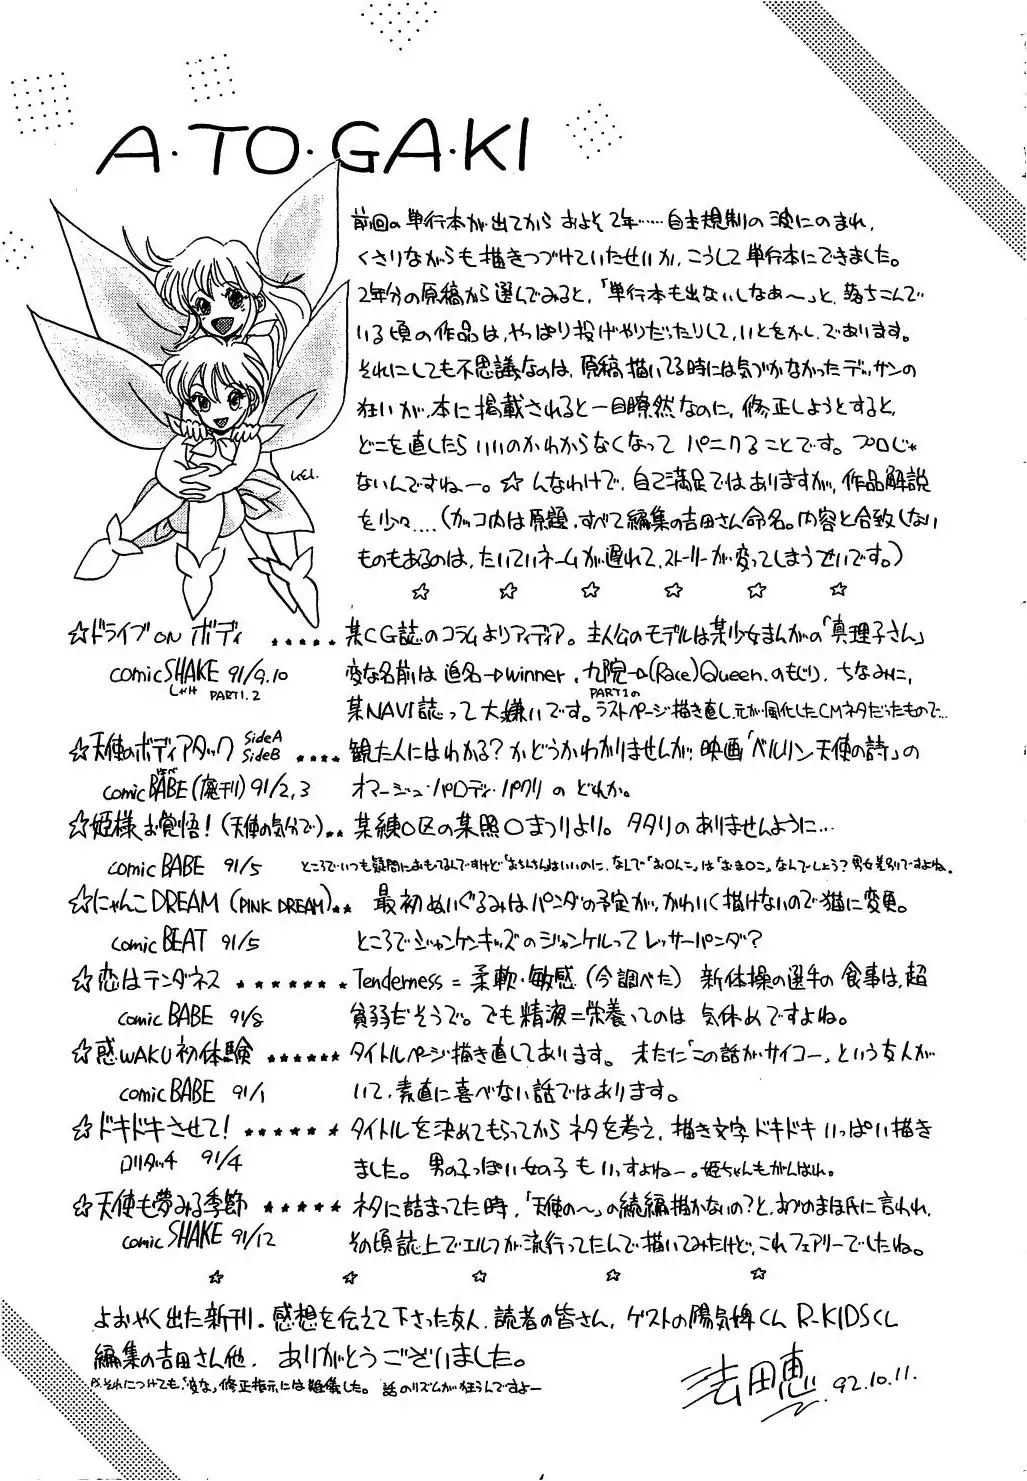 A・TO・GA・KI
前回の単行本が出てから およそ2年……自主規制の波にのまれ、
くさりながらも描きつづけていたせいか、こうして単行本にできました。
2年分の原稿から選んでみると、「単行本も出ないしなあ〜」と、落ちこんで
いる頃の作品は、やっぱり投げやりだったりして、いとをかし、であります。
それにしても不思議なのは、原稿描いてる時には気づかなかったデッサンの
狂いが、本に掲載されると一目瞭然なのに、修正しようとすると、
どこを直したらいいのかわからなくなって パニクることです。プロじゃ
ないんですねー。☆んなわけで、自己満足ではありますが、作品解説
を少々…(カッコ内は原題、すべて編集の吉田さん命名。内容と合致しない
ものもあるのは、たいていネームが遅れて、ストーリーが変ってしまうせいです。)
Kei.
☆ ☆ ☆ ☆ ☆ ☆
☆ドライブON ボディ ★★★★★ 某CG誌のコラムよりアイディア。主人公のモデルは某少女まんがの「真理子さん」
comic SHAKE 91/9.10 変な名前は 追名→winner、九院→(Race)Queen、のもじり、ちなみに、
シャケ PART1.2 PART1の
某NAVI誌って大嫌いです。ラストページ描き直し、元が風化したCMネタだったもので…
☆天使のボディアタック SideA SideB ★★★★ 観た人にはわかる?かどうかわかりませんが、映画「ベルリン天使の詩」の
comic BABE(廃刊) 91/2,3 オマージュ・パロディ・パクリ の どれか。
☆姫様お覚悟!(天使の気分で)★★ 某練○区の某照○まつりより。タタリのありませんように…
comic BABE 91/5 ところでいつも疑問におもてるんですけど「おちんちんはいいのに、なんで「お○んこ」は「おま○こ」なんでしょう?男女差別ですよね。
☆にゃんこDREAM(PINK DREAM)★★ 最初ぬいぐるみはパンダの予定が、かわいく描けないので猫に変更。
comic BEAT 91/5 ところでジャンケンキッズのジャンケルってレッサーパンダ?
☆恋はテンダネス ★★★★★★★ Tenderness = 柔軟・敏感(今調べた) 新体操の選手の食事は、超
comic BABE 91/8 貧弱だそうで。でも精液=栄養ってのは 気休めですよね。
☆惑WAKU初体験 ★★★★★★ タイトルページ描き直してあります。未だに「この話がサイコー」という友人が
comic BABE 91/1 いて、素直に喜べない話ではあります。
☆ドキドキさせて! ★★★★★★ タイトルを決めてもらってからネタを考え、描き文字 ドキドキ いっぱい描き
ロリタッチ 91/4 ました。男の子っぽい女の子もいいすよねー。姫ちゃんもがんばれ。
☆天使も夢みる季節 ★★★★★ ネタに詰まってた時、「天使の〜」の続編描かないの?と、あづめまほ氏に言われ、
comic SHAKE 91/12 その頃誌上でエルフが流行ってたんで描いてみたけど、これフェアリーでしたね。
☆ ☆ ☆ ☆ ☆
よおやく出た新刊。感想を伝えて下さった友人、読者の皆さん、ゲストの陽気婢くん R-KIDSくん
編集の吉田さん他、ありがとうございました。
それにつけても、「変な」修正指示には難儀した。話のリズムが狂うんですよー
法田恵 92.10.11.